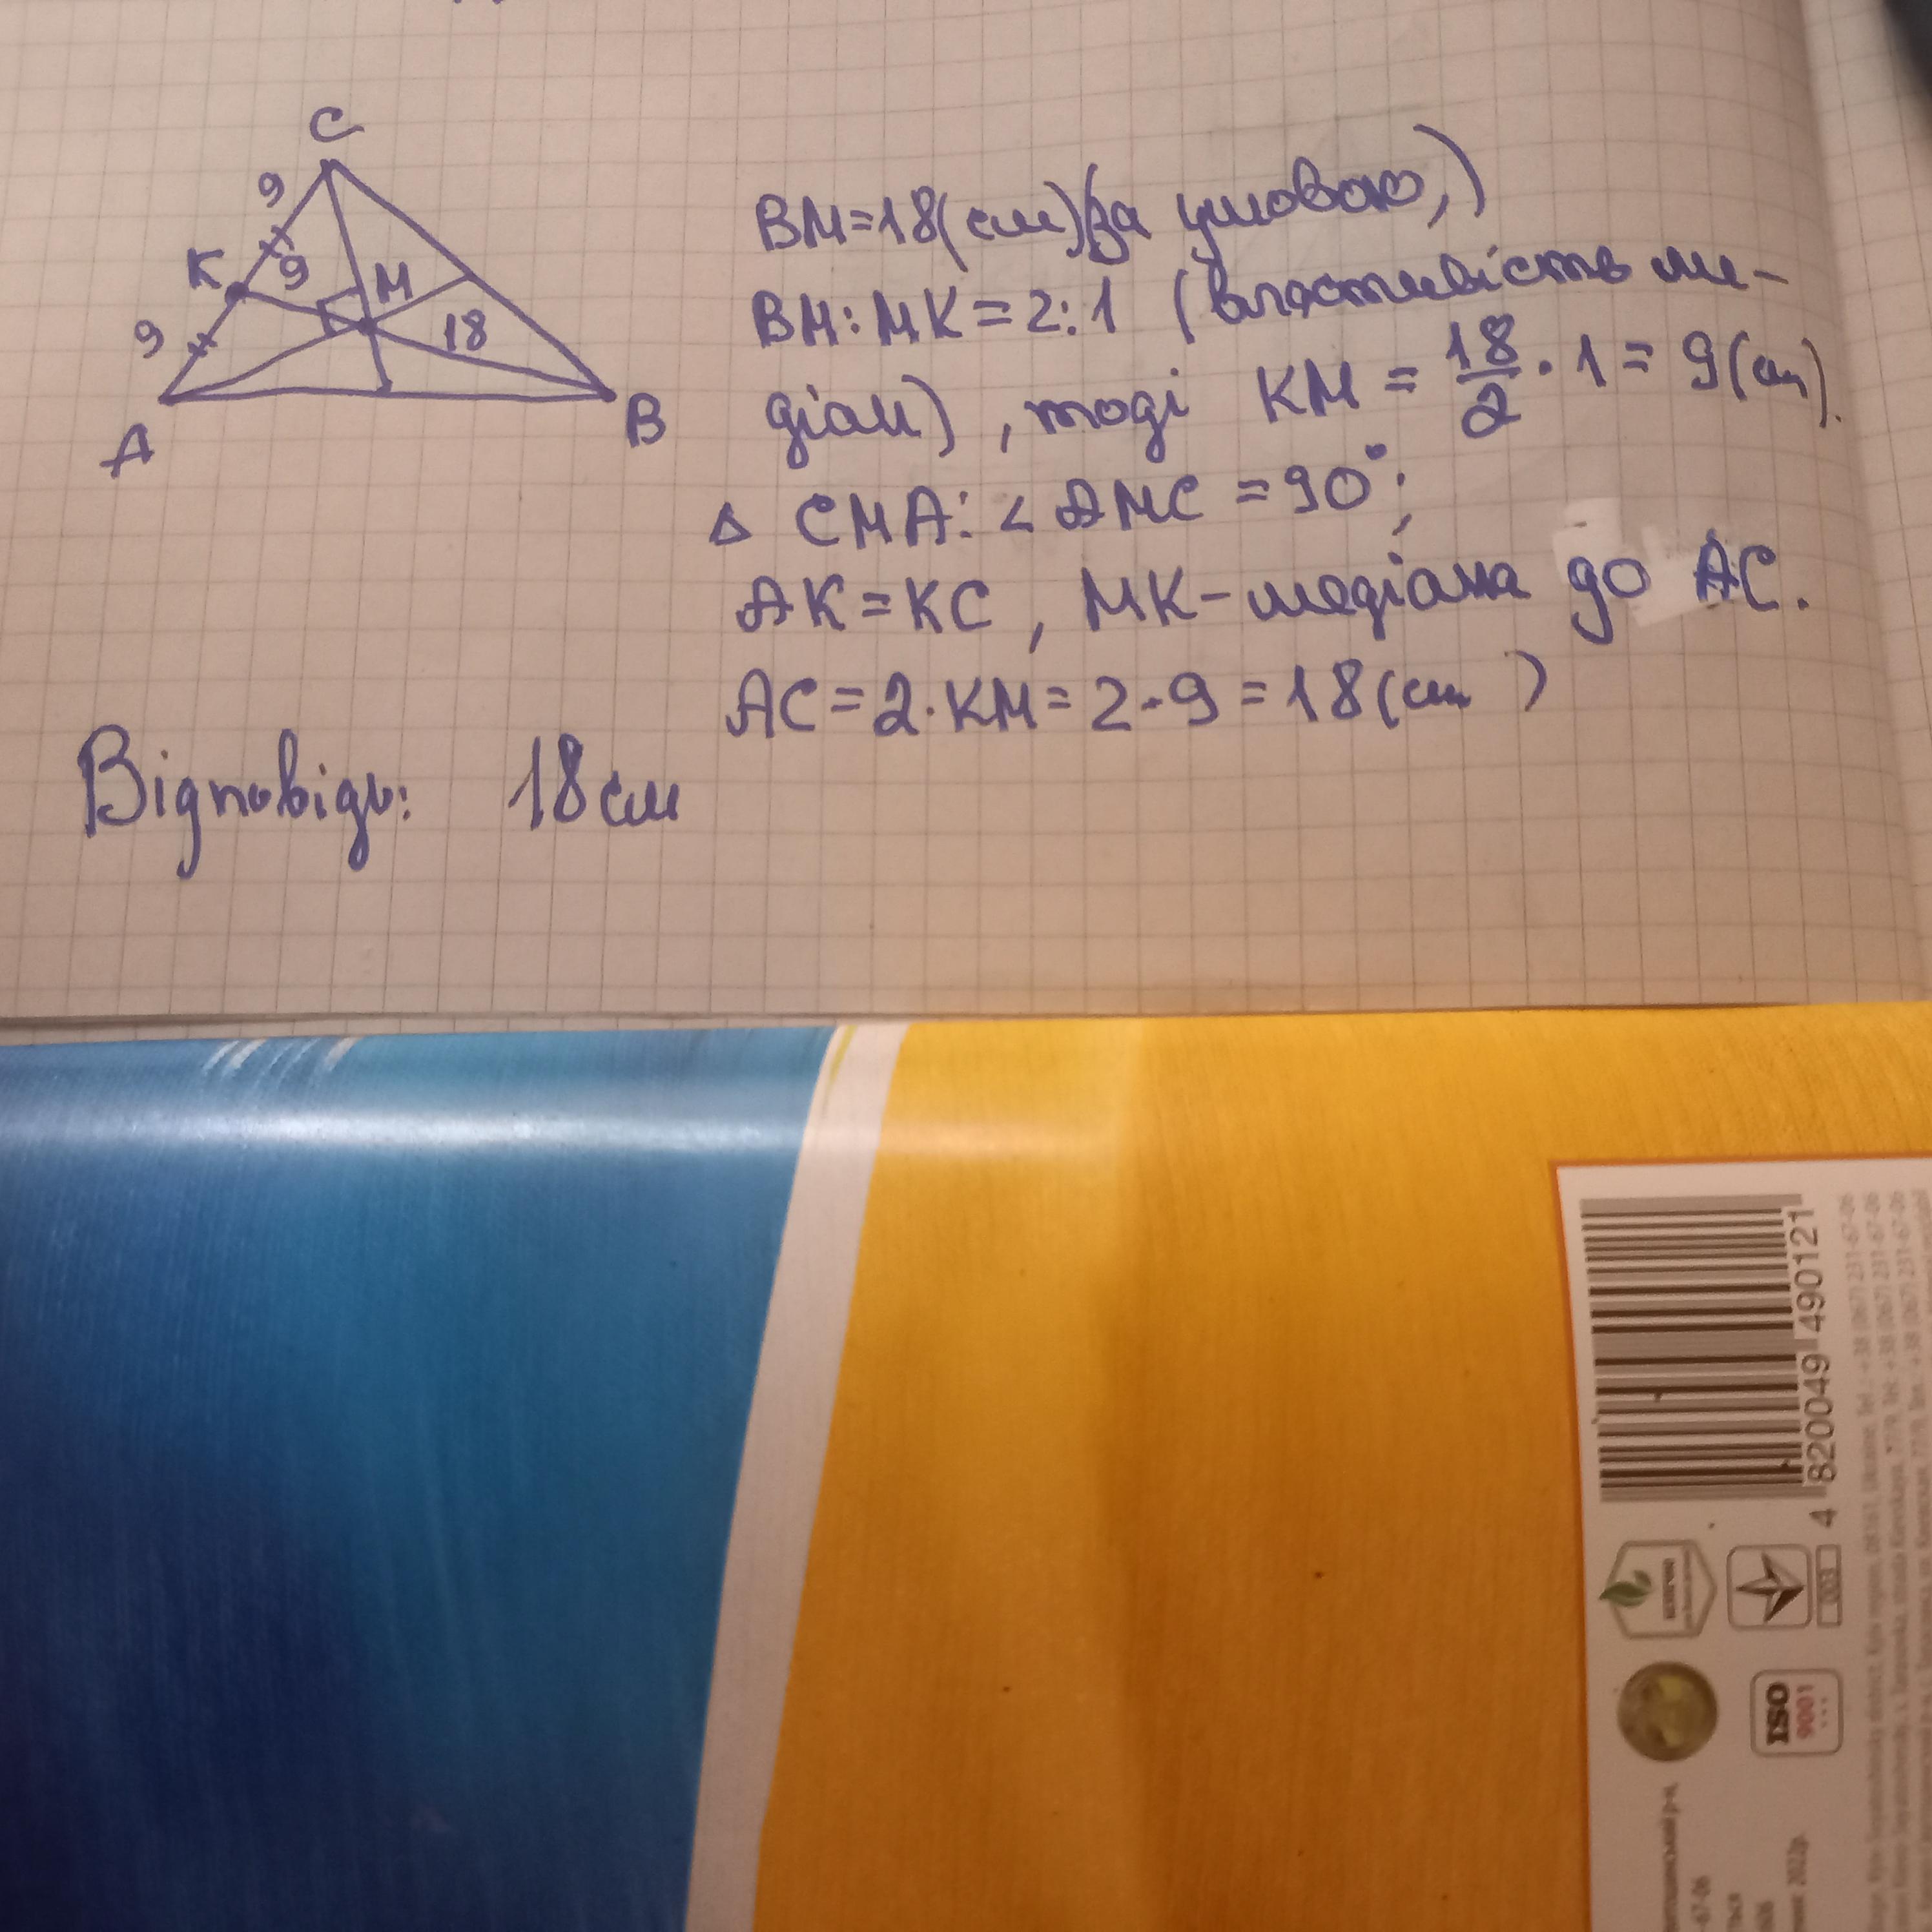 C
9
K
9
M
9
18
A
B
BM=18(см)(за умовою,)
BM:MK=2:1 (властивість ме-
діан), тоді KM = 18/2 · 1 = 9(см).
Δ CMA: ∠ AMC = 90°;
AK=KC, MK-медіана до AC.
AC=2·KM=2·9=18(см)
Відповідь: 18см
4 820049 490121
003
ISO
9001